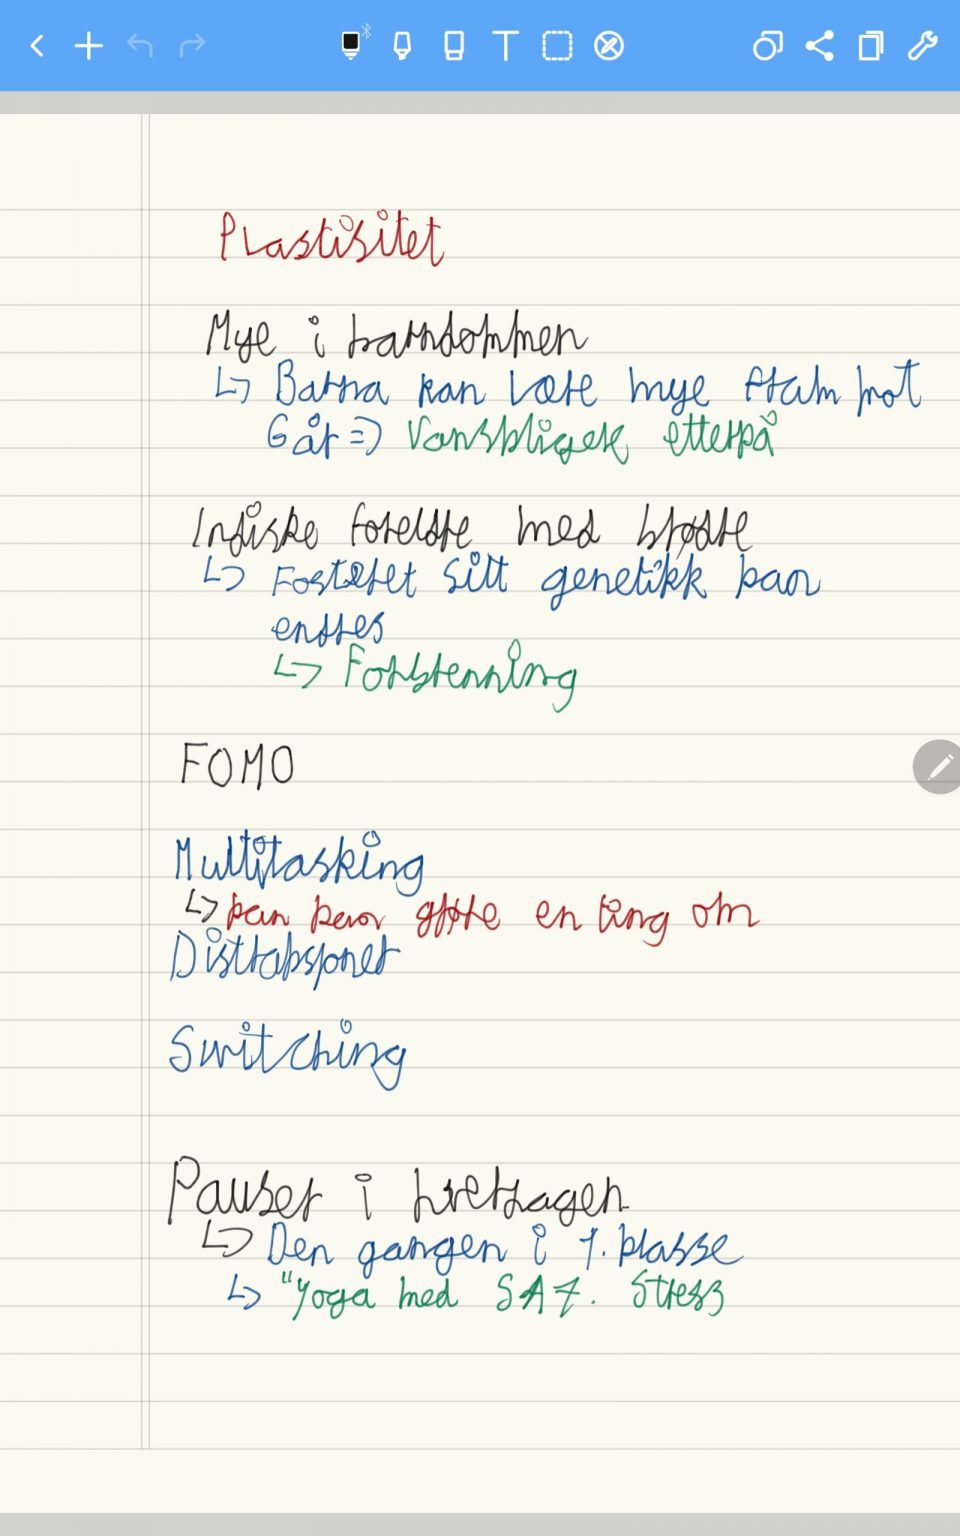 Plastisitet
Mye i barndommen
↳ Barna kan være mye fram mot
6 år => Vanskligere etterpå
Indiske foreldre med brødre
↳ Fosteret sitt genetikk kan
endres
↳ Forskenning
FOMO
Multitasking
↳ kan bare gjøre en ting om
Distraksjoner
Switching
Pauser i hverdagen
↳ Den gangen i 7. klasse
↳ "Yoga med SA7. Stress